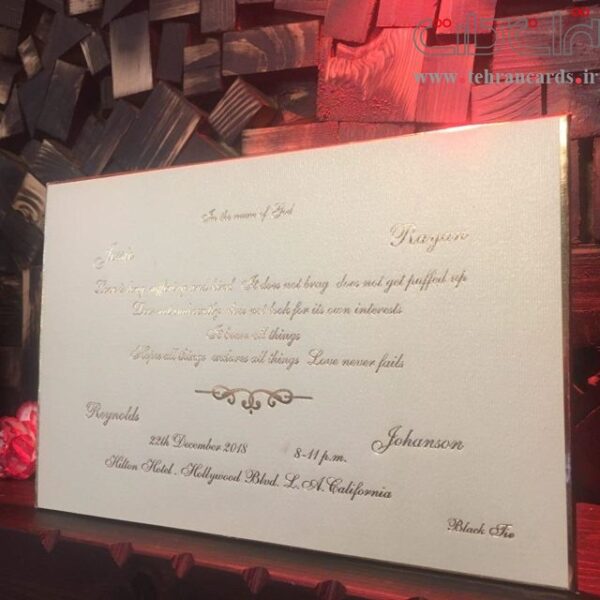 www.tehrancards.ir
In the name of God
Rayan
is long suffering and kind It does not brag does not get puffed up
Does not look for its own interests
It bears all things
Hopes all things endures all things Love never fails
Reynolds
Johanson
22th December 2018 8-11 p.m.
Hilton Hotel. Hollywood Blvd. L.A. California
Black Tie